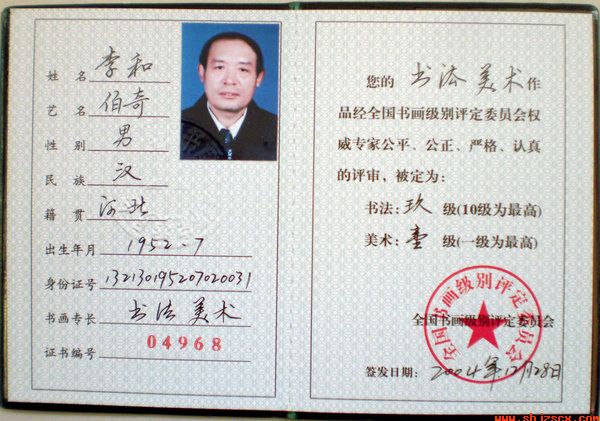 姓名 李和
艺名 伯奇
性别 男
民族 汉
籍贯 河北
出生年月 1952.7
身份证号 132130195207020031
书画专长 书法 美术
证书编号 04968
您的 书法 美术 作
品经全国书画级别评定委员会权
威专家公平、公正、严格、认真
的评审，被定为：
书法：玖 级(10级为最高)
美术：壹 级(一级为最高)
全国书画级别评定委员会
全国书画级别评定委员会
签发日期：2004年12月28日
www.shjzscx.com